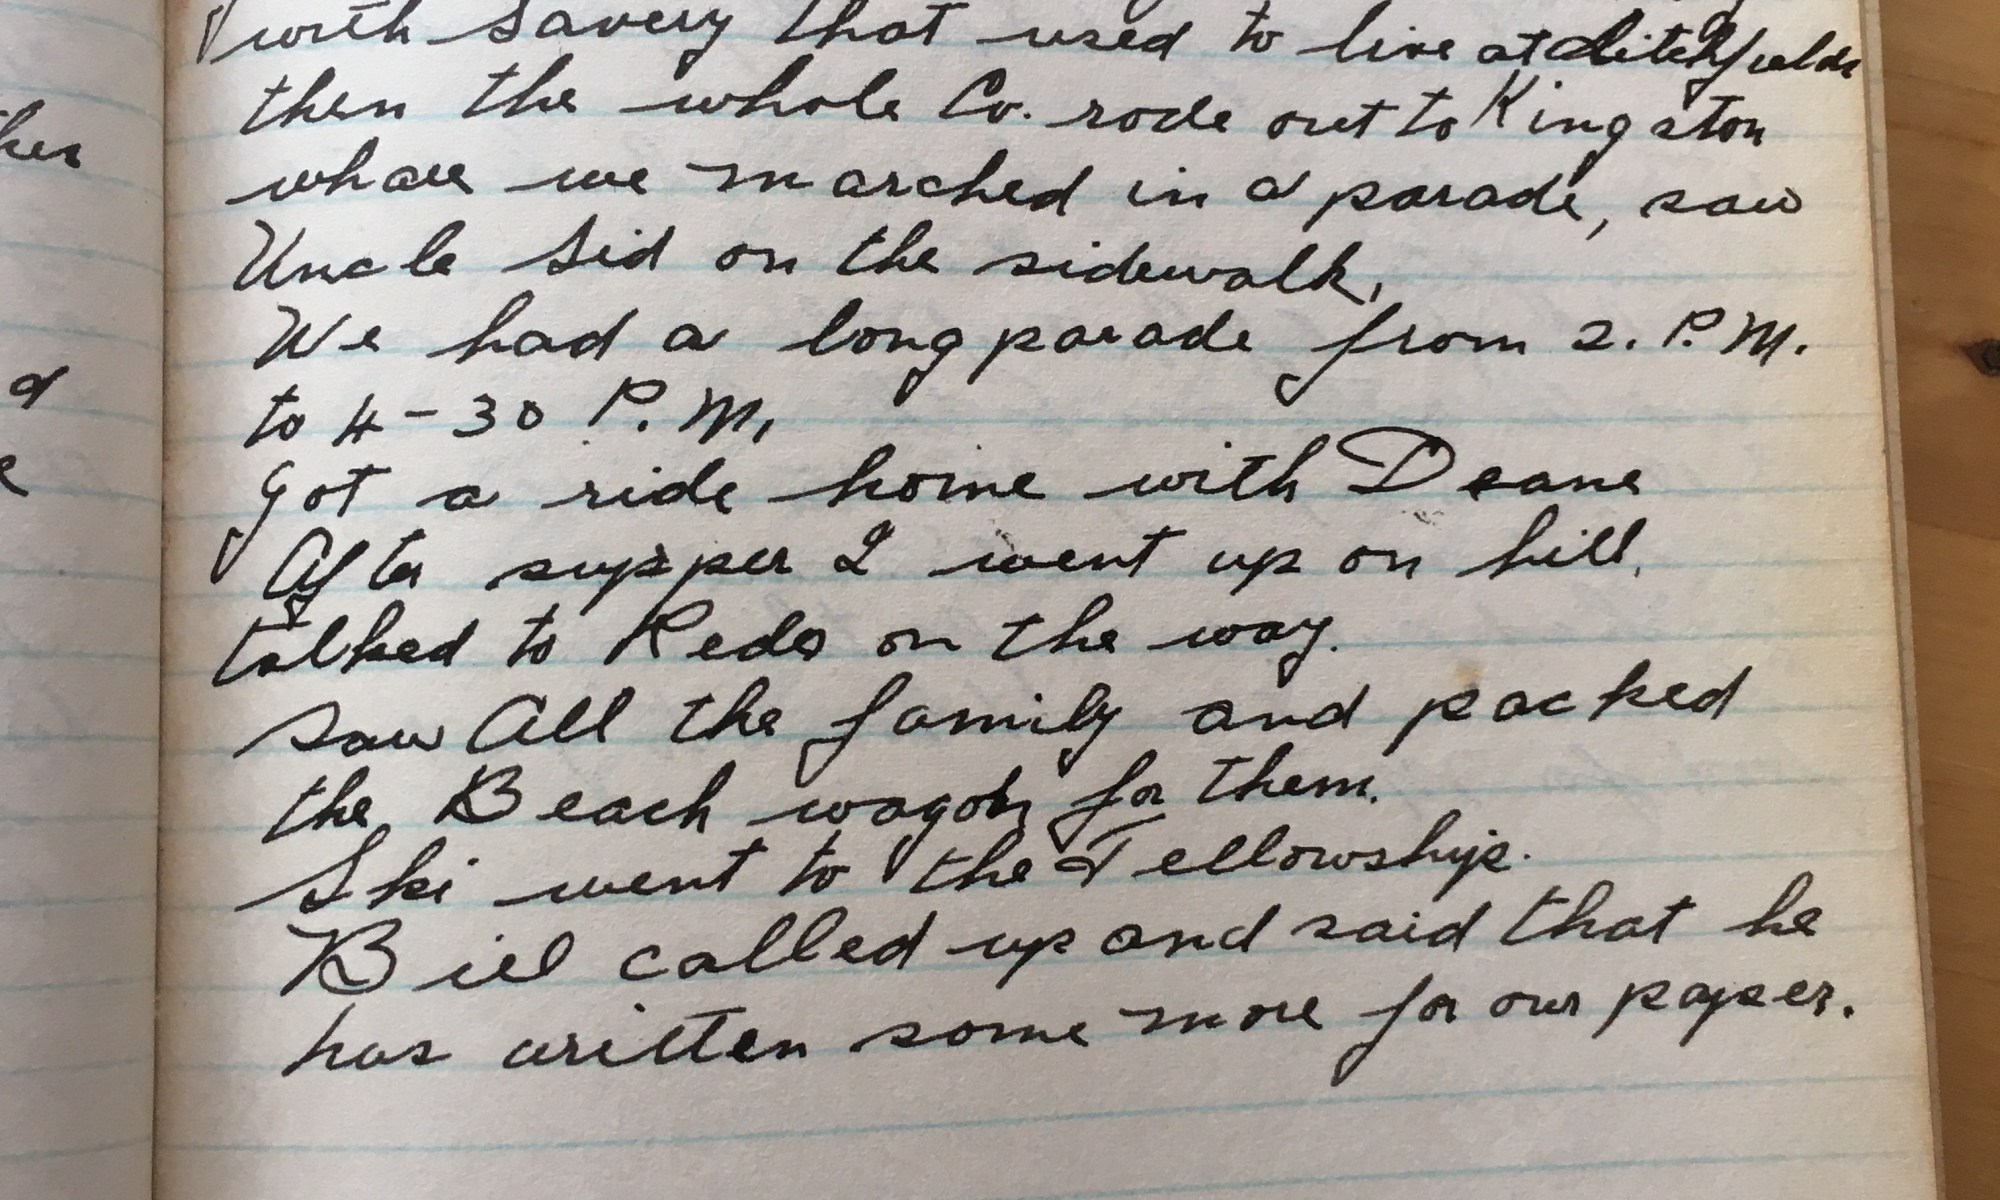 with Savery that used to live at Litchfields
then the whole Co. rode out to Kingston
whare we marched in a parade, saw
Uncle Sid on the sidewalk,
We had a long parade from 2. P.M.
to 4-30 P.M,
Got a ride home with Deane
After supper I went up on hill,
talked to Reds on the way.
saw All the family and packed
the Beach wagon for them.
Ski went to the Fellowship.
Bill called up and said that he
has written some more for our paper.